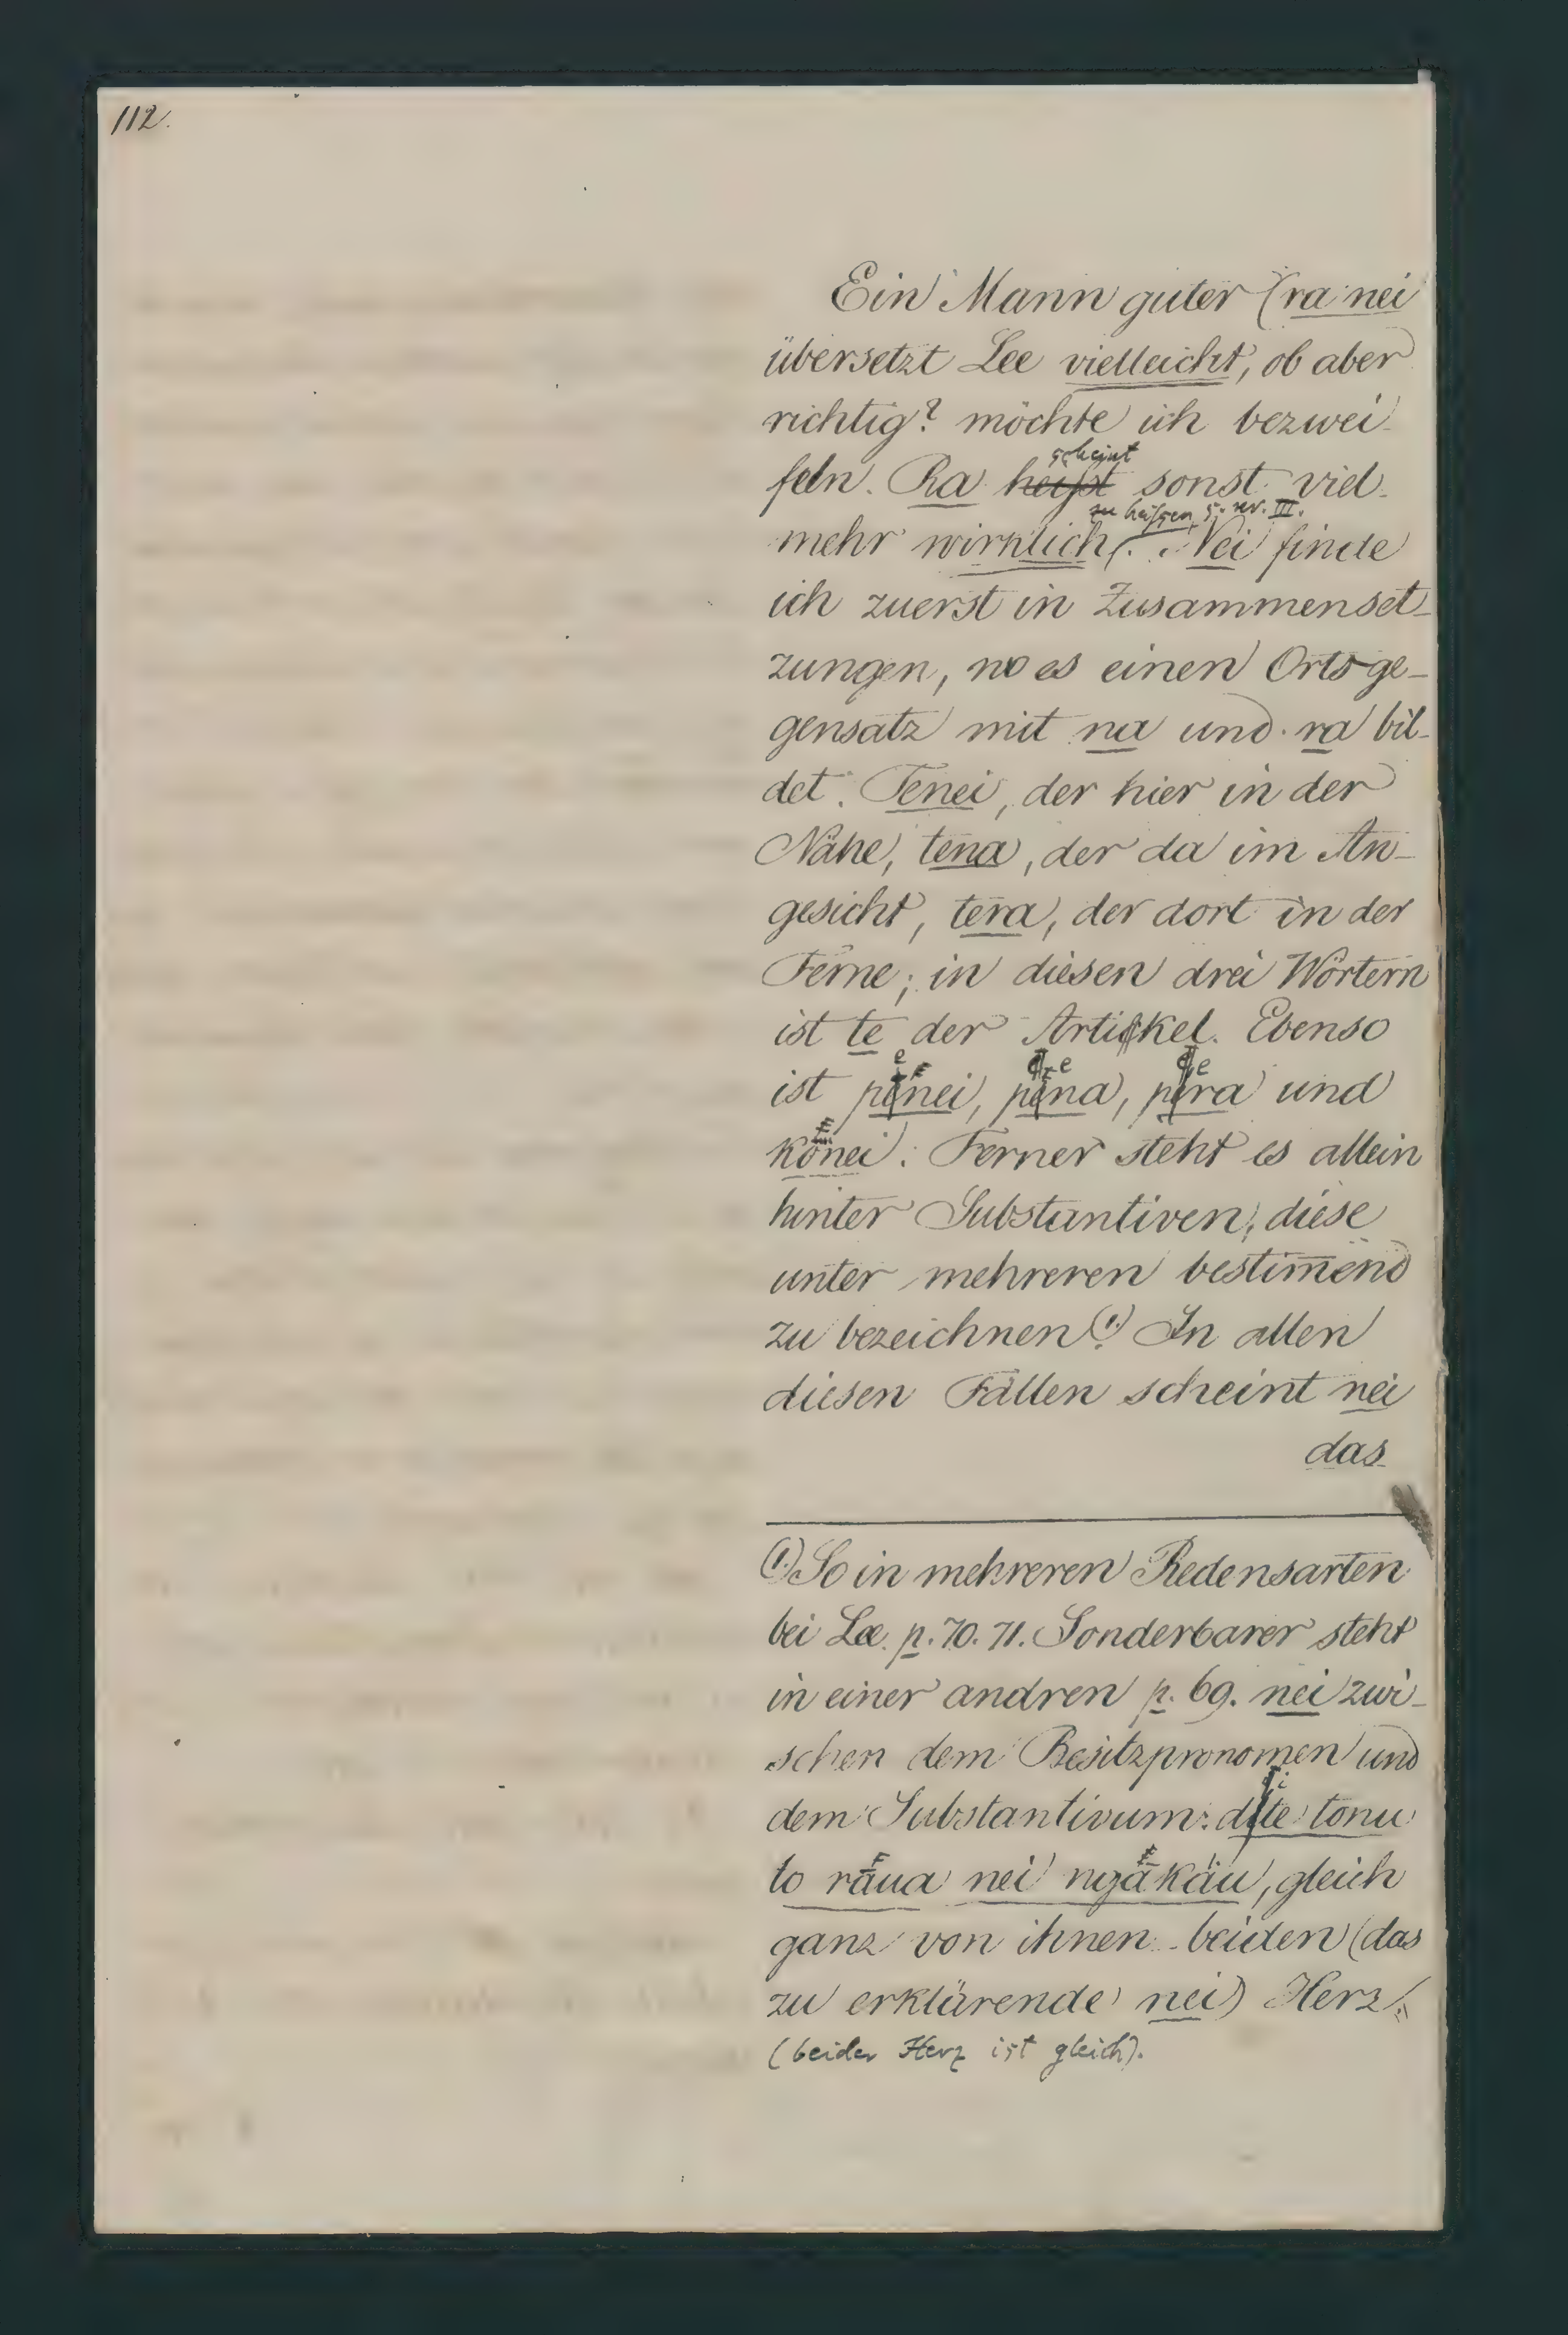 112.
Ein Mann guter (ra nei
übersetzt Lee vielleicht, ob aber
richtig? möchte ich bezwei-
scheint
feln. Ra heißt sonst viel-
zu heißen, s. nr. III.
mehr wirklich. Nei finde
ich zuerst in Zusammenset-
zungen, wo es einen Ortsge-
gensatz mit na und ra bil-
det. Tenei, der hier in der
Nähe, tena, der da im An-
gesicht, tera, der dort in der
Ferne; in diesen drei Wörtern
ist te der Artikel. Ebenso
ist penei, pena, pera und
kōnei. Ferner steht es allein
hinter Substantiven, diese
unter mehreren bestim̄end
zu bezeichnen (1.) In allen
diesen Fällen scheint nei
das
(1.) So in mehreren Redensarten
bei Lee. p. 70. 71. Sonderbarer steht
in einer andren p. 69. nei zwi-
schen dem Besitzpronomen und
dem Substantivum: tonu
to rāua nei ngākāu, gleich
ganz von ihnen beiden (das
zu erklärende nei) Herz
(beider Herz ist gleich).